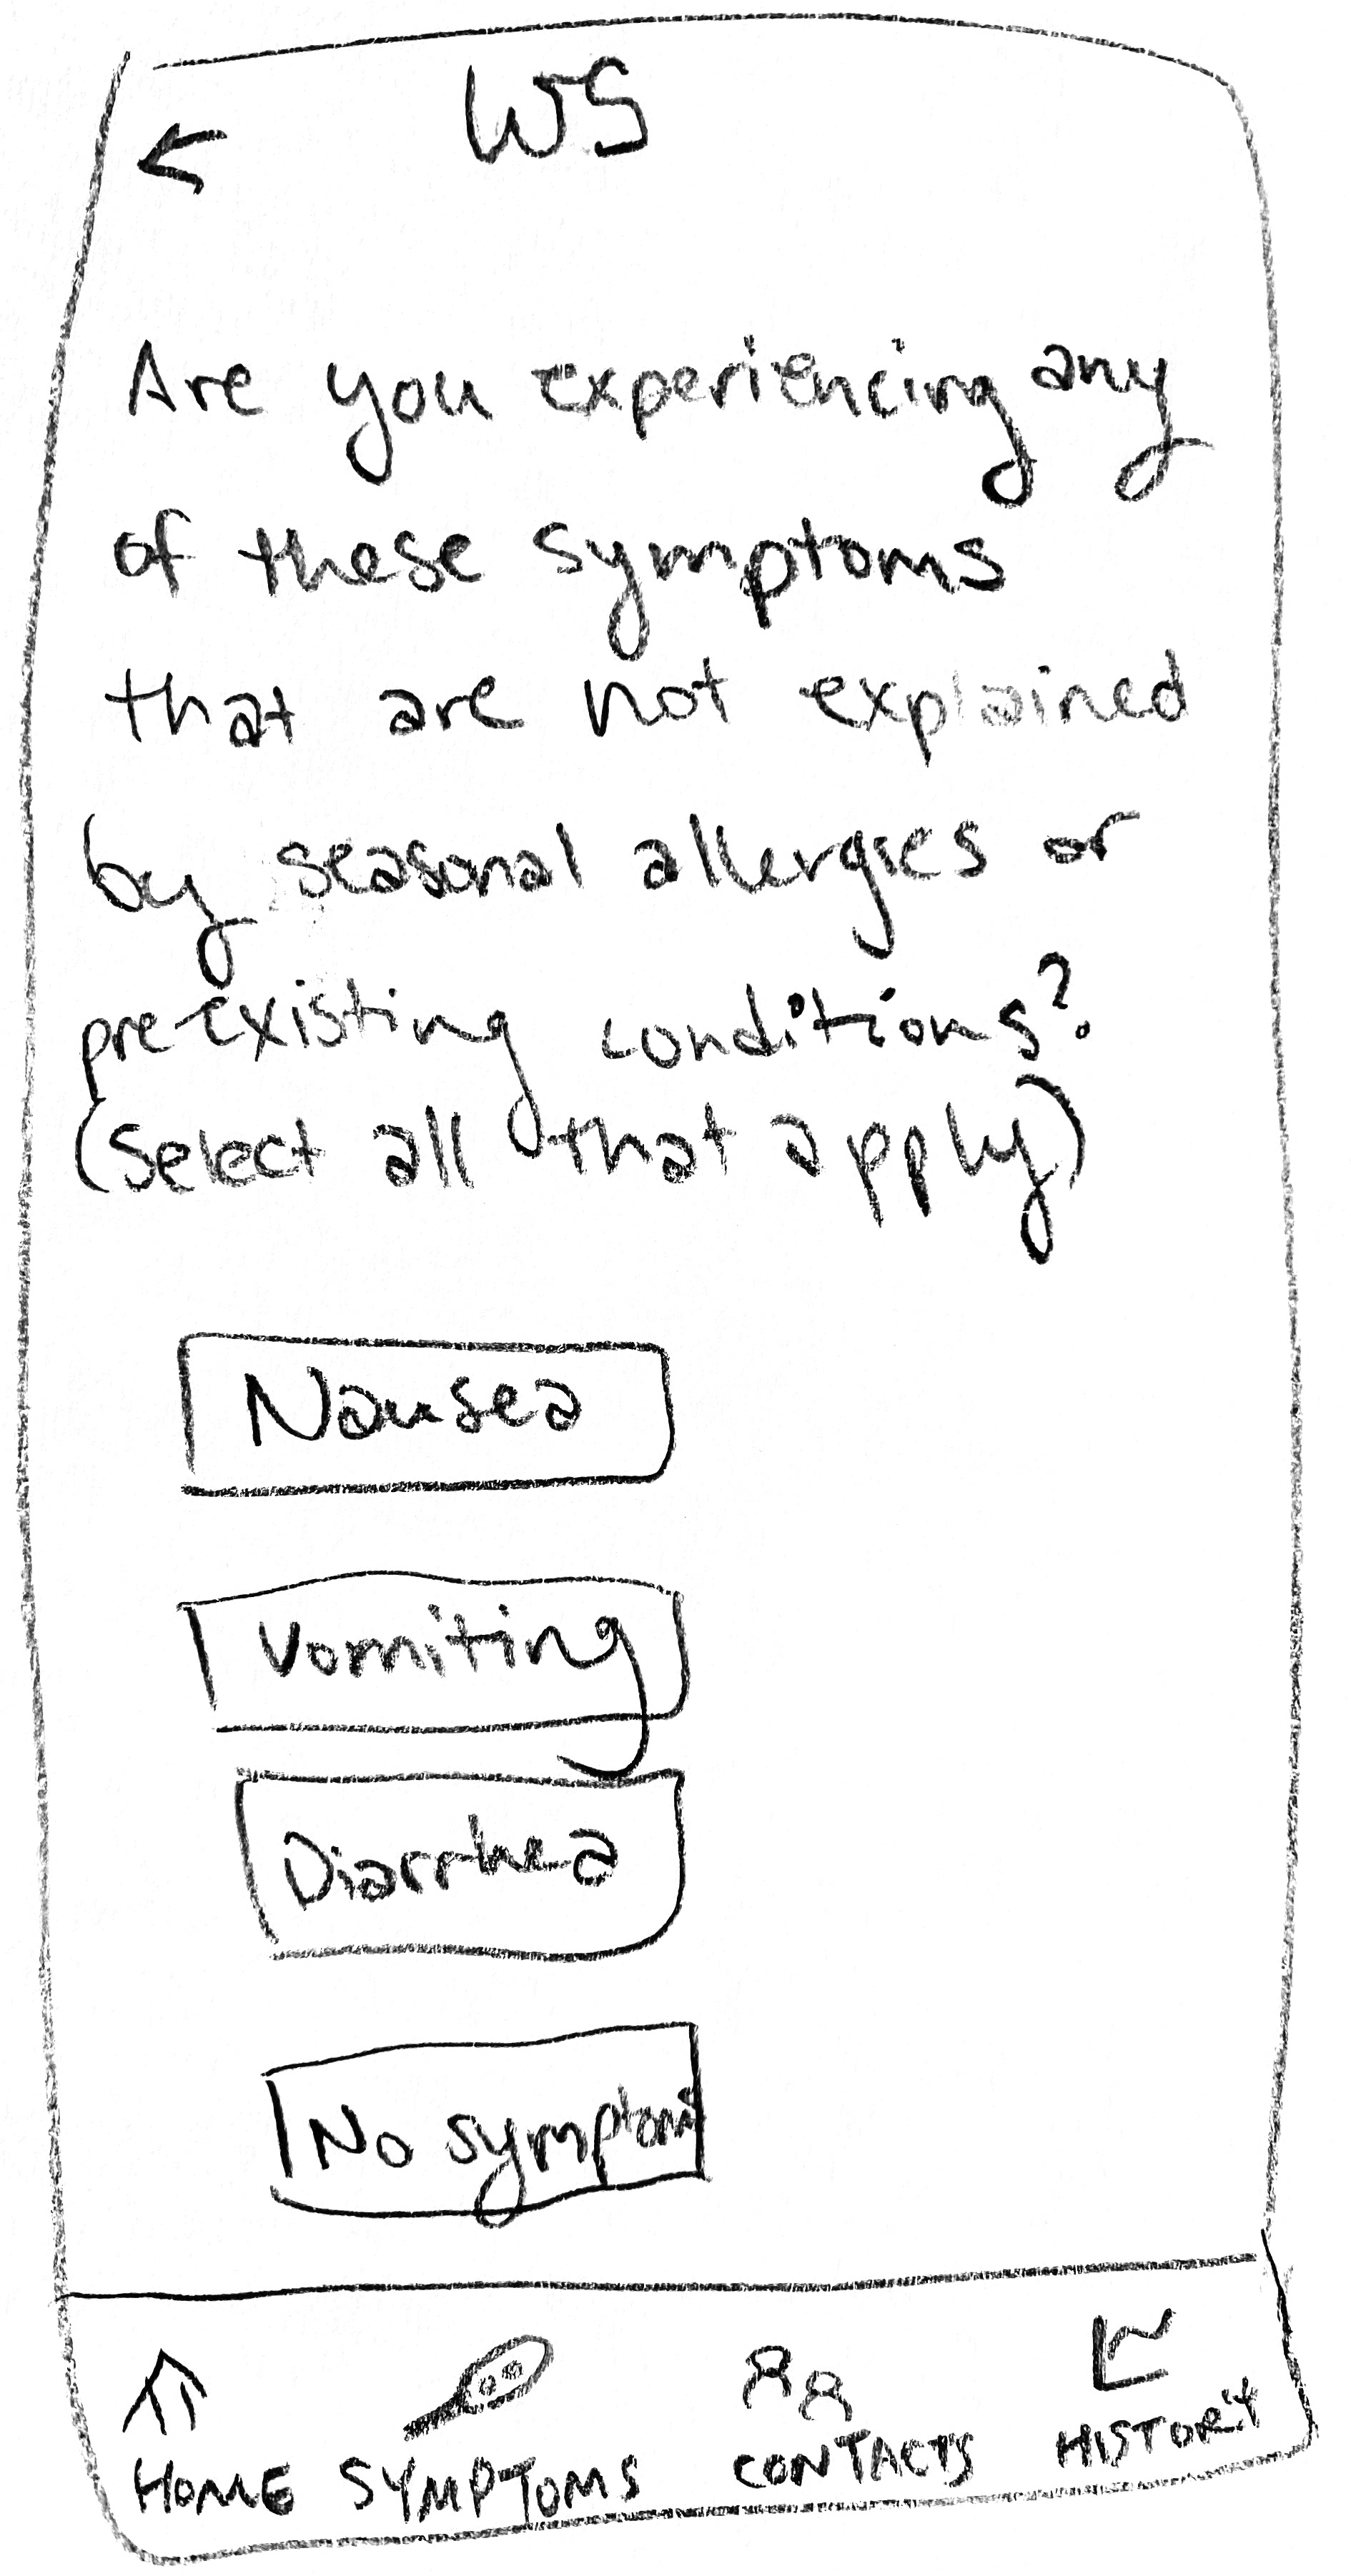 WS
Are you experiencing any
of these symptoms
that are not explained
by seasonal allergies or
pre-existing conditions?
(Select all that apply)
Nausea
Vomiting
Diarrhea
No symptoms
HOME SYMPTOMS CONTACTS HISTORY